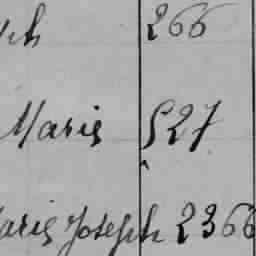 eph 266
Marie 527
Marie Joseph 2366